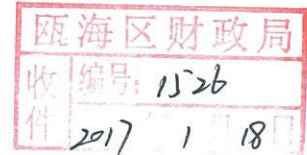 瓯海区财政局
收件
编号: 1526
2017 年 1 月 18 日